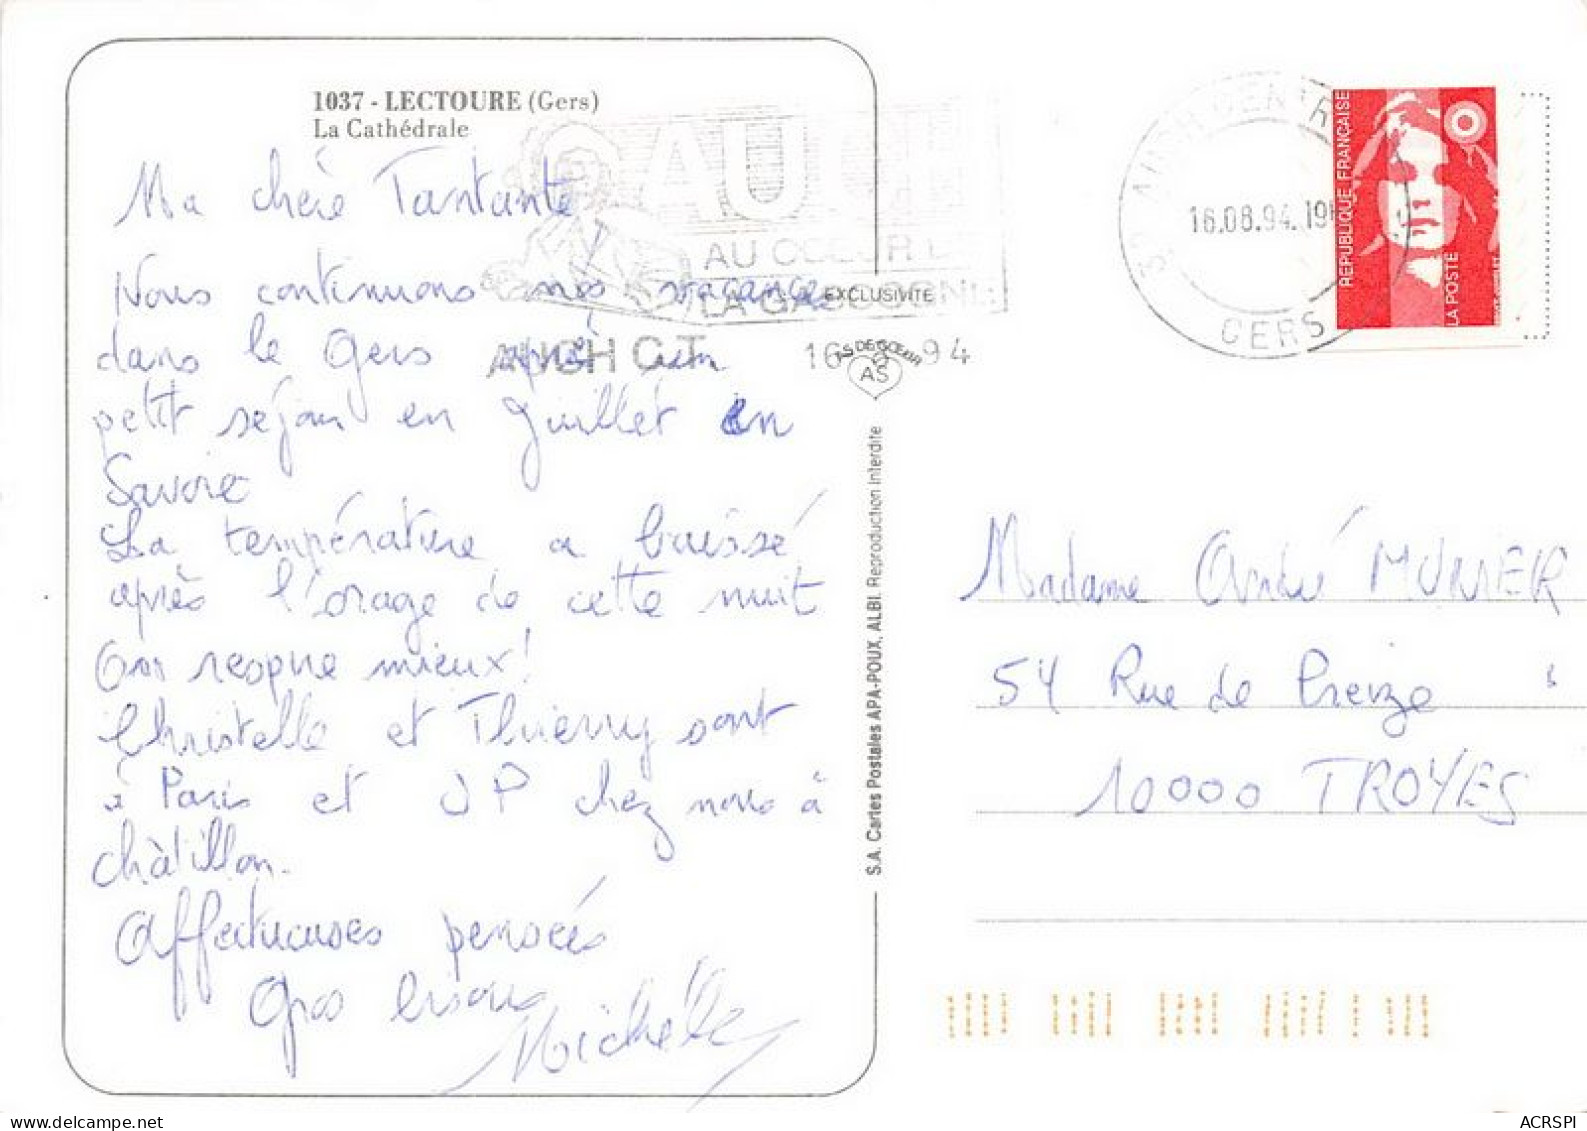 1037 - LECTOURE (Gers)
La Cathédrale
Ma chère Tantante
Nous continuons nos vacances
dans le Gers après un
petit séjour en Juillet en
Savoie
La température a baissé
après l'orage de cette nuit
On respire mieux!
Christelle et Thierry sont
à Paris et JP chez nous à
châtillon.
Affectueuses pensées
Gros bisous
Michelle
AU
AU COEUR DE
LA GASCOGNE
AUCH C.T.
16 94
EXCLUSIVITÉ
AS DE CŒUR
AS
S.A. Cartes Postales APA-POUX, ALBI. Reproduction interdite
16.08.94.19H
GERS
RÉPUBLIQUE FRANÇAISE
LA POSTE
Madame André MUNIER
54 Rue de Preize
10000 TROYES
ACRSPI